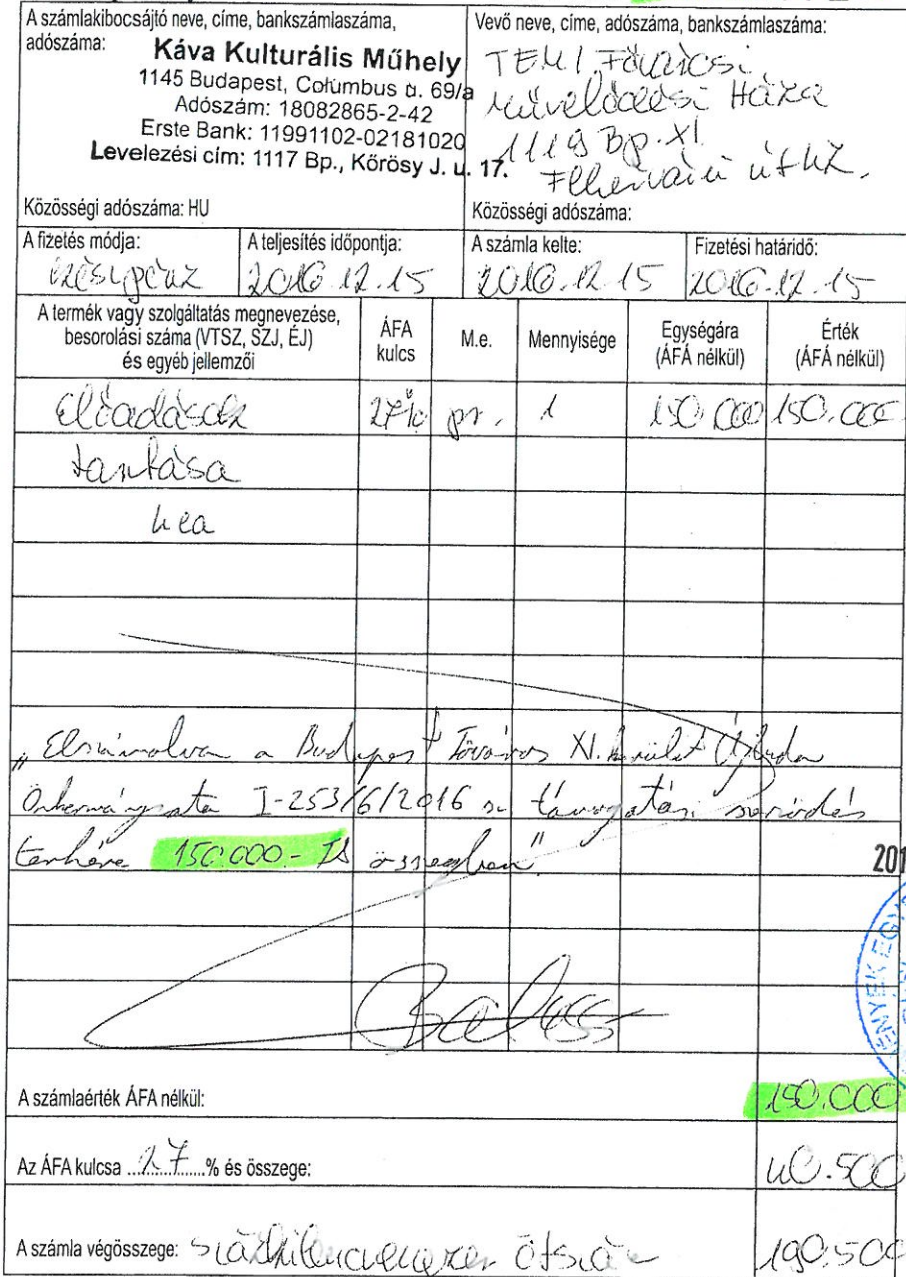 A számlakibocsájtó neve, címe, bankszámlaszáma,
adószáma:
Káva Kulturális Műhely
1145 Budapest, Columbus u. 69/a
Adószám: 18082865-2-42
Erste Bank: 11991102-02181020
Levelezési cím: 1117 Bp., Kőrösy J. u. 17.
Közösségi adószáma: HU
Vevő neve, címe, adószáma, bankszámlaszáma:
TEMI Fővárosi
Művelődési Háza
1119 Bp. XI.
Fehérvári út 47.
Közösségi adószáma:
A fizetés módja:
készpénz
A teljesítés időpontja:
2016.12.15
A számla kelte:
2016.12.15
Fizetési határidő:
2016.12.15
A termék vagy szolgáltatás megnevezése,
besorolási száma (VTSZ, SZJ, ÉJ)
és egyéb jellemzői
ÁFA
kulcs
M.e.
Mennyisége
Egységára
(ÁFÁ nélkül)
Érték
(ÁFÁ nélkül)
előadások 27% 1 150.000 150.000
tartása
„Elszámolva a Budapest Főváros XI. kerület Újbuda
Önkormányzata I-253/6/2016 sz. támogatási szerződés
terhére 150.000.- Ft összegben"
201
A számlaérték ÁFA nélkül: 150.000
Az ÁFA kulcsa 27 % és összege: 40.500
A számla végösszege: százkilencvenezer ötszáz 190.500